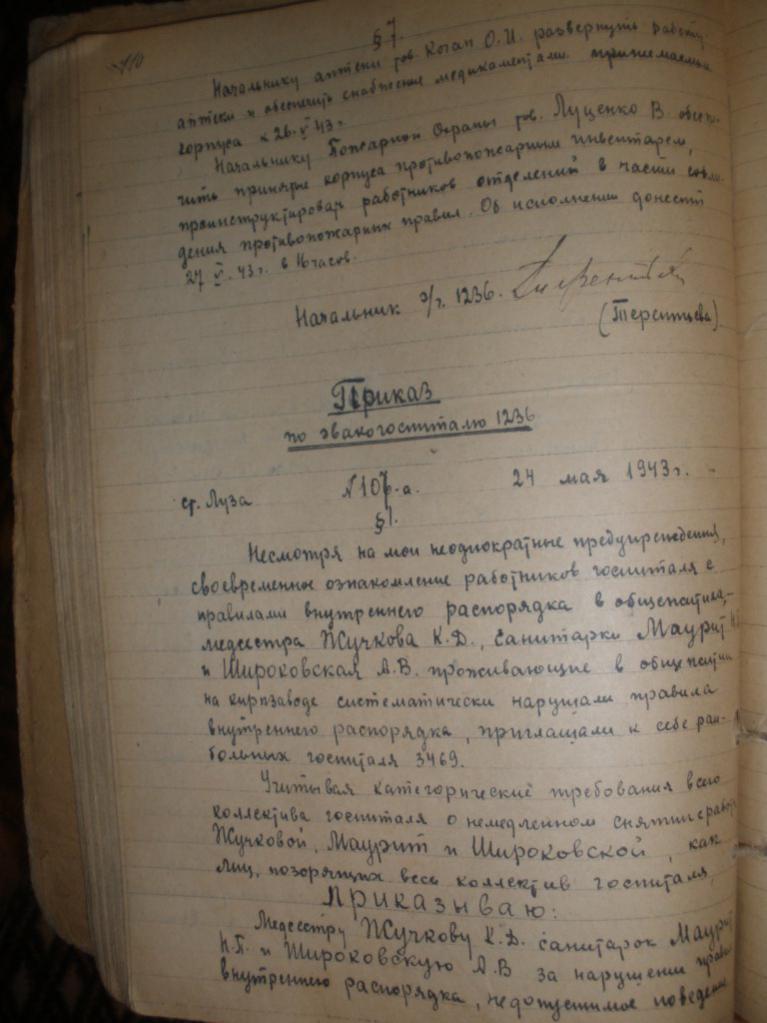 § 7.
Начальнику аптеки тов. Коган О.И. развернуть работу
аптеки и обеспечить снабжение медикаментами принимаемые
корпуса к 26.V 43 г.
Начальнику Пожарной Охраны тов. Луценко В. обеспе-
чить принятые корпуса противопожарным инвентарем,
проинструктировать работников отделений в части соблю-
дения противопожарных правил. Об исполнении донести
27 V. 43 г. в 16 часов.
Начальник э/г. 1236.
(Терентьева)
Приказ
по эвакогоспиталю 1236
ст. Луза № 107-а. 24 мая 1943 г.
§ 1.
Несмотря на мои неоднократные предупреждения,
своевременное ознакомление работников госпиталя с
правилами внутреннего распорядка в общежитиях,-
медсестра Жучкова К.Д., санитарки Маурит Н.П.
и Широковская А.В. проживающие в общежитии
на кирпзаводе систематически нарушали правила
внутреннего распорядка, приглашали к себе ран-
больных госпиталя 3469.
Учитывая категорические требования всего
коллектива госпиталя о немедленном снятии с работ
Жучковой, Маурит и Широковской, как
лиц, позорящих весь коллектив госпиталя,
Приказываю:
Медсестру Жучкову К.Д. санитарок Маурит
Н.П. и Широковскую А.В за нарушении правил
внутреннего распорядка, недопустимое поведение